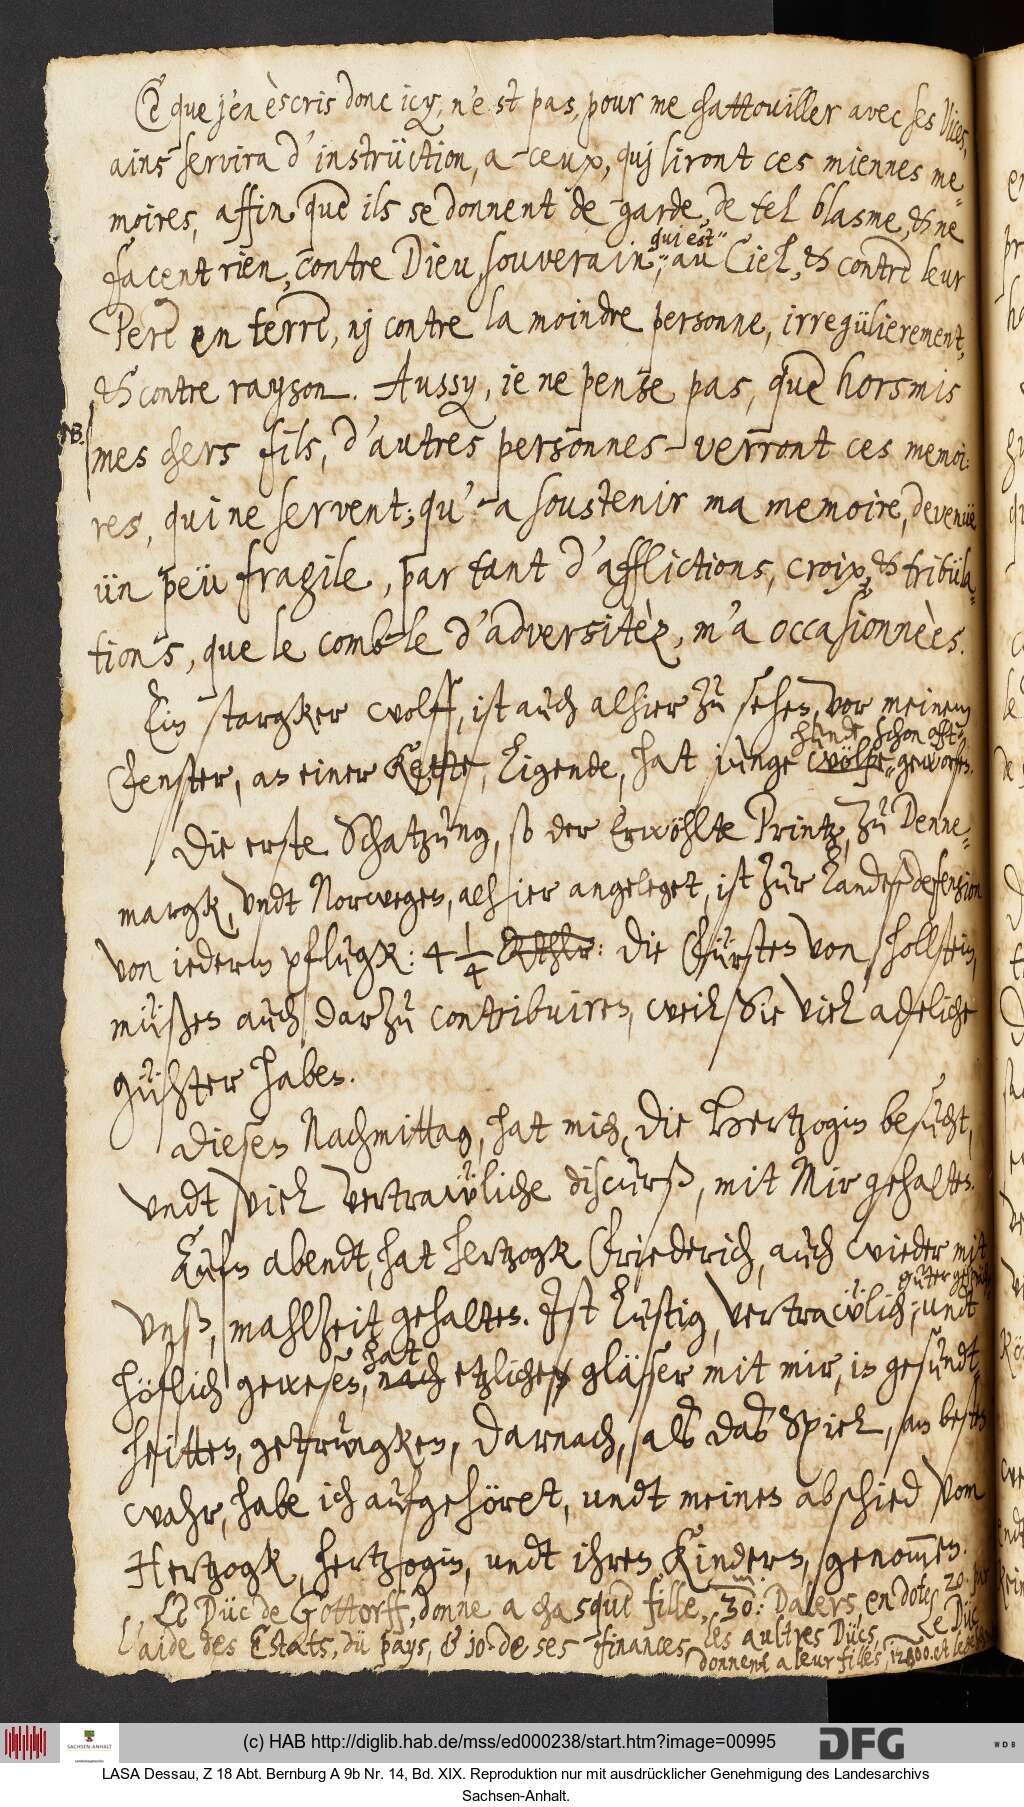 Ce que j'en èscris donc icy, n'est pas, pour me chattouiller avec ses Vices,
ains servira d'instrüction, a-ceux, quj liront ces miennes me"
moires, affin que ils se donnent de garde, de tel blasme, & ne
facent rien, contre Dieu, souverain, qui est au Ciel, & contre leur
Pere en terre, nj contre la moindre personne, irregülierement,
& contre rayson. Aussy, je ne pense pas, que horsmis
NB. mes chers fils, d'autres personnes verront ces memoi:
res, qui ne servent; qu'-a soustenir ma memoire, devenüe
ün peü fragile, par tant d'afflictions, croix, & tribüla"
tions, que le comble d'adversitèz, m'a occasionnèes.
Ein starcker wolff, ist auch alhier zu sehen, vor meinem
hunde, schon oft"
Fenster, an einer Kette, ligende, hat junge wölfe geworfen.
Die erste Schatzung, so der Erwöhlte Printz, zu Denne"
margk, vndt Norwegen, alhier angeleget, ist zur Landeßdefension
von iederm pflugk: 4 1/4 Rthlr: die Fürsten von Hollstein,
müßen auch darzu contribuiren, weil Sie viel adeliche
gühter haben.
Diesen Nachmittag, hat mich, die Hertzogin besucht,
vndt viel vertrawliche discurß, mit Mir gehalten.
Aufn abendt, hat Hertzogk Friederich, auch wieder mit
vnß, mahlzeit gehalten. Ist lustig, vertrawlich, undt
höflich gewesen, nach hat etzliche gläser mit mir, in gesundt"
heitten, getruncken, darnach, alß daß Spiel, am besten
wahr, habe ich aufgehöret, undt meinen abschied vom
Hertzogk, Hertzogin, undt ihren Kindern, genommen.
Le Düc de Gottorff, donne a chasque fille, 30. m. Dalers, en dote, 20. par
l'aide des Estats, dü pays, & 10 de ses finances, les aultres Dücs,
donnent a leur filles, 12000. et
(c) HAB http://diglib.hab.de/mss/ed000238/start.htm?image=00995
SACHSEN-ANHALT
DFG
WDB
LASA Dessau, Z 18 Abt. Bernburg A 9b Nr. 14, Bd. XIX. Reproduktion nur mit ausdrücklicher Genehmigung des Landesarchivs
Sachsen-Anhalt.